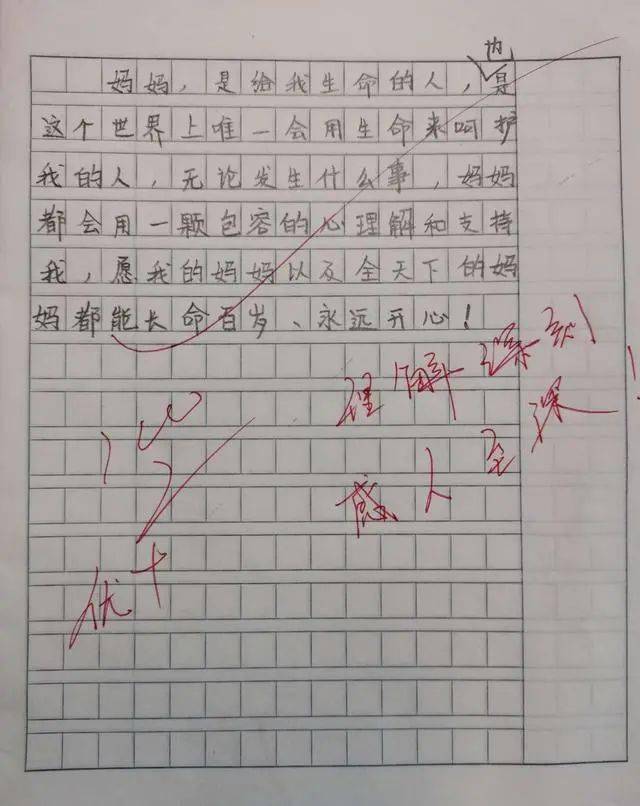 妈妈，是给我生命的人，也是
这个世界上唯一会用生命来呵护
我的人，无论发生什么事，妈妈
都会用一颗包容的心理解和支持
我，愿我的妈妈以及全天下的妈
妈都能长命百岁、永远开心！
理解深刻
感人至深！
100
优+